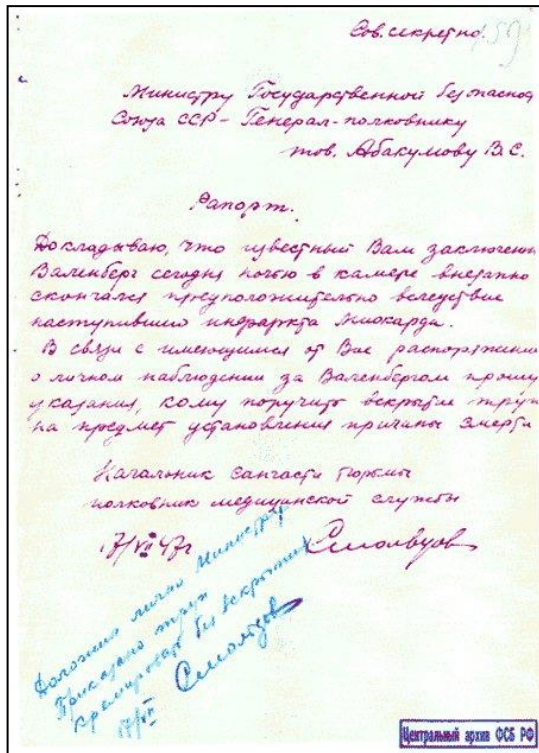 Сов. секретно.
Министру Государственной безопаснос
Союза ССР – Генерал-полковнику
тов. Абакумову В.С.
Рапорт.
Докладываю, что известный Вам заключенн
Валенберг сегодня ночью в камере внезапно
скончался предположительно вследствие
наступившего инфаркта миокарда.
В связи с имеющимся от Вас распоряжение
о личном наблюдении за Валенбергом прошу
указания, кому поручить вскрытие труп
на предмет установления причины смерти
Начальник санчасти тюрьмы
полковник медицинской службы
17/VII 47г Смольцов
Доложил лично Министру
Приказано труп
кремировать без вскрытия
17/VII Смольцов
Центральный архив ФСБ РФ